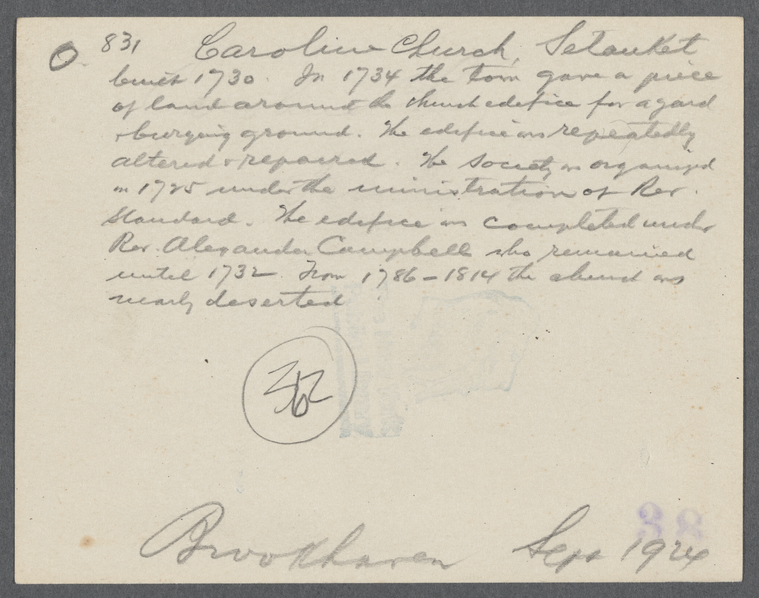 831 Caroline Church, Setauket
built 1730. In 1734 the town gave a piece
of land around the church edifice for a yard
+ burying ground. The edifice was repeatedly
altered + repaired. The Society was organized
in 1725 under the ministration of Rev.
Standard. The edifice was completed under
Rev. Alexander Campbell who remained
until 1732. From 1786-1814 the church was
nearly deserted
362
38
Brookhaven Sept 1924